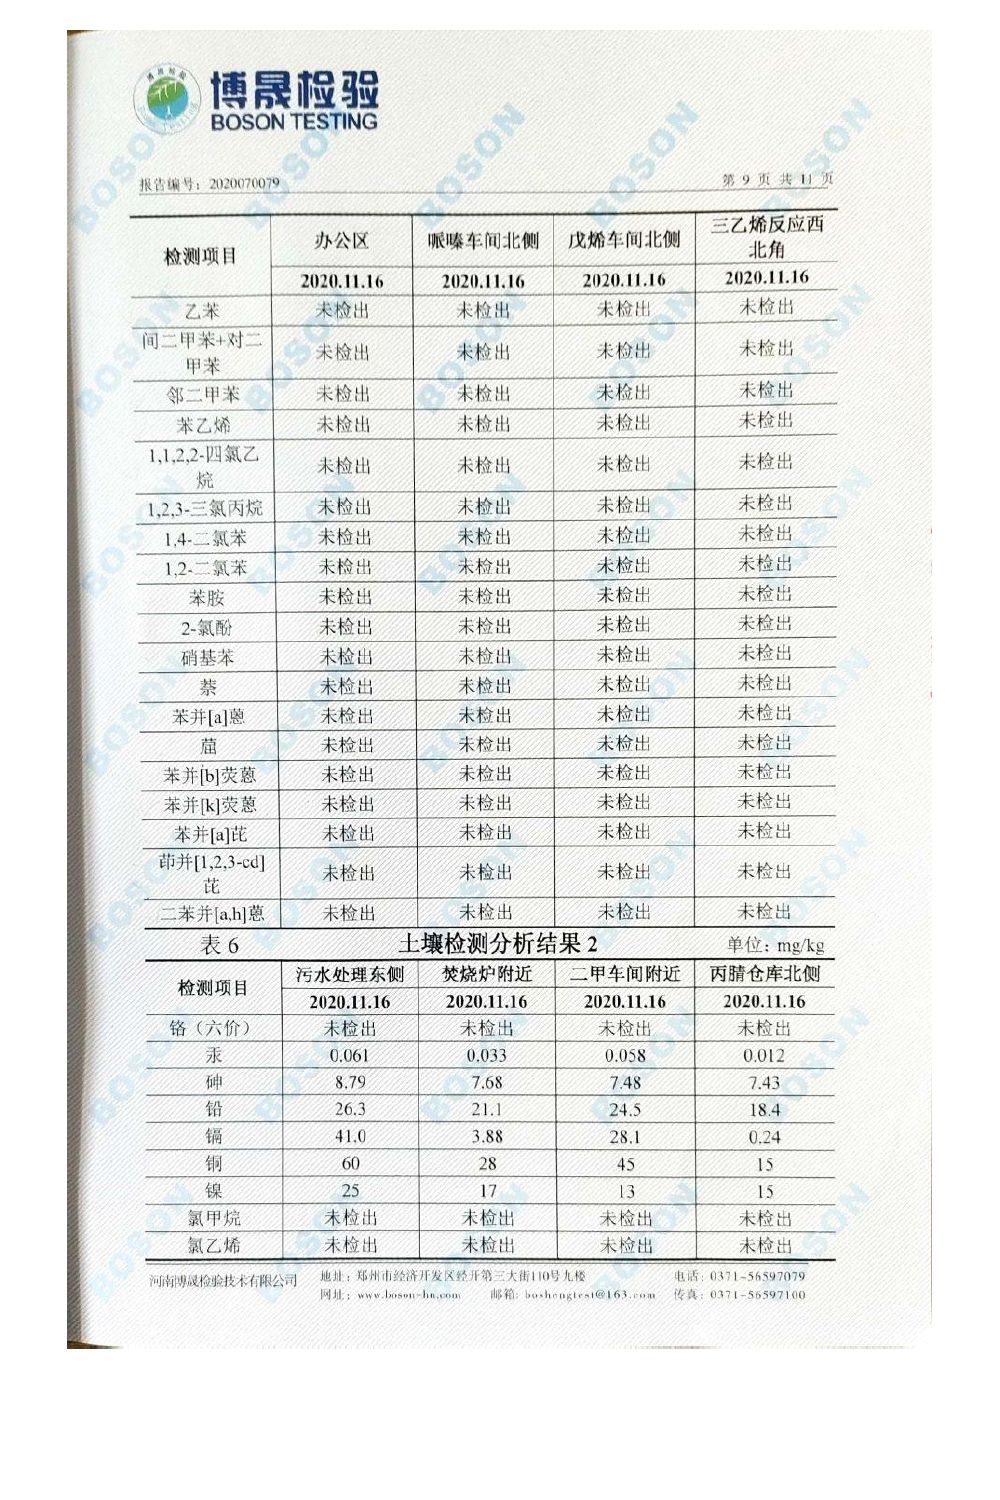 博晟检验
BOSON TESTING
报告编号：2020070079
第 9 页 共 11 页
检测项目 办公区 哌嗪车间北侧 戊烯车间北侧 三乙烯反应西北角
2020.11.16 2020.11.16 2020.11.16 2020.11.16
乙苯 未检出 未检出 未检出 未检出
间二甲苯+对二甲苯 未检出 未检出 未检出 未检出
邻二甲苯 未检出 未检出 未检出 未检出
苯乙烯 未检出 未检出 未检出 未检出
1,1,2,2-四氯乙烷 未检出 未检出 未检出 未检出
1,2,3-三氯丙烷 未检出 未检出 未检出 未检出
1,4-二氯苯 未检出 未检出 未检出 未检出
1,2-二氯苯 未检出 未检出 未检出 未检出
苯胺 未检出 未检出 未检出 未检出
2-氯酚 未检出 未检出 未检出 未检出
硝基苯 未检出 未检出 未检出 未检出
萘 未检出 未检出 未检出 未检出
苯并[a]蒽 未检出 未检出 未检出 未检出
䓛 未检出 未检出 未检出 未检出
苯并[b]荧蒽 未检出 未检出 未检出 未检出
苯并[k]荧蒽 未检出 未检出 未检出 未检出
苯并[a]芘 未检出 未检出 未检出 未检出
茚并[1,2,3-cd]芘 未检出 未检出 未检出 未检出
二苯并[a,h]蒽 未检出 未检出 未检出 未检出
表 6 土壤检测分析结果 2 单位：mg/kg
检测项目 污水处理东侧 焚烧炉附近 二甲车间附近 丙腈仓库北侧
2020.11.16 2020.11.16 2020.11.16 2020.11.16
铬（六价） 未检出 未检出 未检出 未检出
汞 0.061 0.033 0.058 0.012
砷 8.79 7.68 7.48 7.43
铅 26.3 21.1 24.5 18.4
镉 41.0 3.88 28.1 0.24
铜 60 28 45 15
镍 25 17 13 15
氯甲烷 未检出 未检出 未检出 未检出
氯乙烯 未检出 未检出 未检出 未检出
河南博晟检验技术有限公司 地址：郑州市经济开发区经开第三大街110号九楼 电话：0371-56597079
网址：www.boson-hn.com 邮箱：boshengtest@163.com 传真：0371-56597100